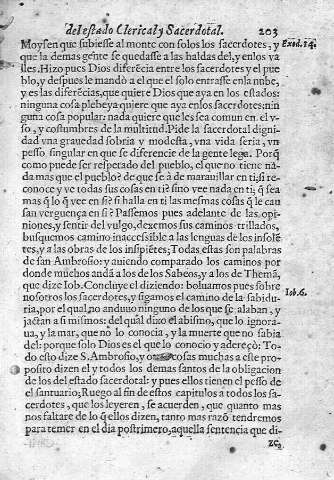 del estado Clerical y Sacerdotal. 203
Moysen que subiesse al monte con solos los sacerdotes, y
que la demas gente se quedasse a las haldas del, y en los va
lles. Hizo pues Dios diferēcia entre los sacerdotes y el pue
blo, y despues le mandò a el que el solo entrasse en la nube,
y es las diferēcias, que quiere Dios que aya en los estados:
ninguna cosa plebeya quiere que aya en los sacerdotes: nin
guna cosa popular: nada quiere que les sea comun en el v-
so, y costumbres de la multitud. Pide la sacerdotal digni
dad vna grauedad sobria y modesta, vna vida seria, vn
pesso singular en que se diferencie de la gente lega. Porq̃
como puede ser respetado del pueblo, el que no tiene na
da mas que el pueblo? de que se à de marauillar en ti, si re
conoce y ve todas sus cosas en ti? sino vee nada en ti, q̃ sea
mas q̃ lo q̃ vee en si? si halla en ti las mesmas cosas q̃ le cau
san verguença en si? Passemos pues adelante de las opi-
niones, y sentir del vulgo, dexemos sus caminos trillados,
busquemos camino inaccessible a las lenguas de los insolē-
tes, y a las obras de los insipiētes; Todas estas son palabras
de san Ambrosio: y auiendo comparado los caminos por
donde muchos andā a los de los Sabeos, y a los de Themā,
que dize Iob. Concluye el diziendo: boluamos pues sobre
nosotros los sacerdotes, y sigamos el camino de la sabidu-
ria, por el qual no anduuo ninguno de los que se alaban, y
jactan a si mismos: del qual dixo el abismo, que lo ignora-
ua, y la mar, que no lo conocia, y la muerte que no sabia
del: porque solo Dios es el que lo conocio y adereçò: To
do esto dize S. Ambrosio, y otras cosas muchas a este pro-
posito dizen el y todos los demas santos de la obligacion
de los del estado sacerdotal: y pues ellos tienen el pesso de
el santuario; Ruego al fin de estos capitulos a todos los sa-
cerdotes, que los leyeren, se acuerden, que quanto mas
nos faltare de lo q̃ ellos dizen, tanto mas razō tendremos
para temer en el dia postrimero, aquella sentencia que di-
ze,
Exod. 14.
Iob. 6.